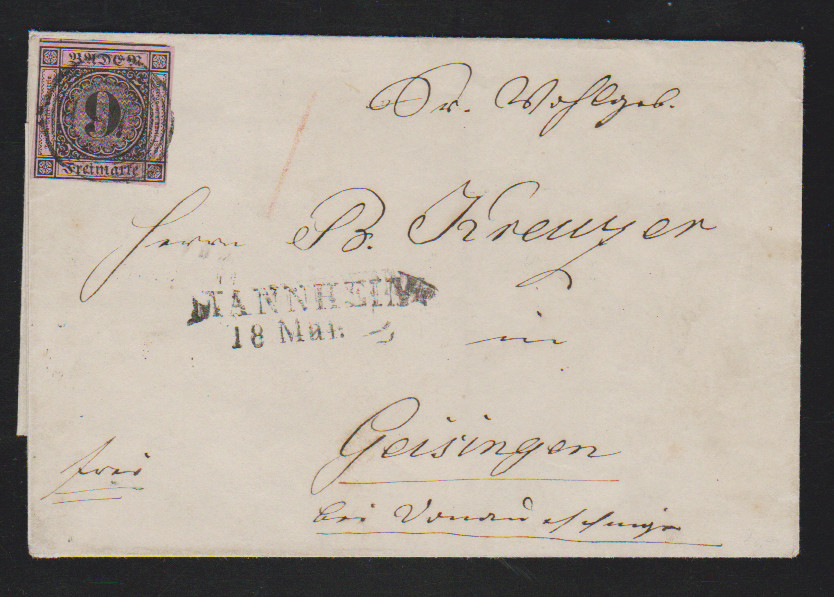 BADEN
9.
Freimarke
Sr. Wohlgeb.
Herrn B. Kreuzer
MANNHEIM
18 Mar.
in
Geisingen
frei
bei Donaueschingen